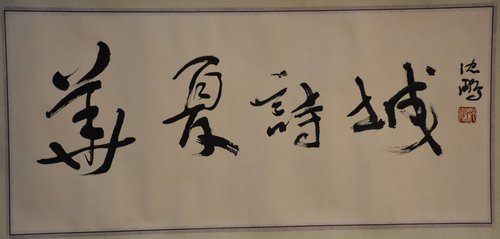 華夏詩城
沈鹏